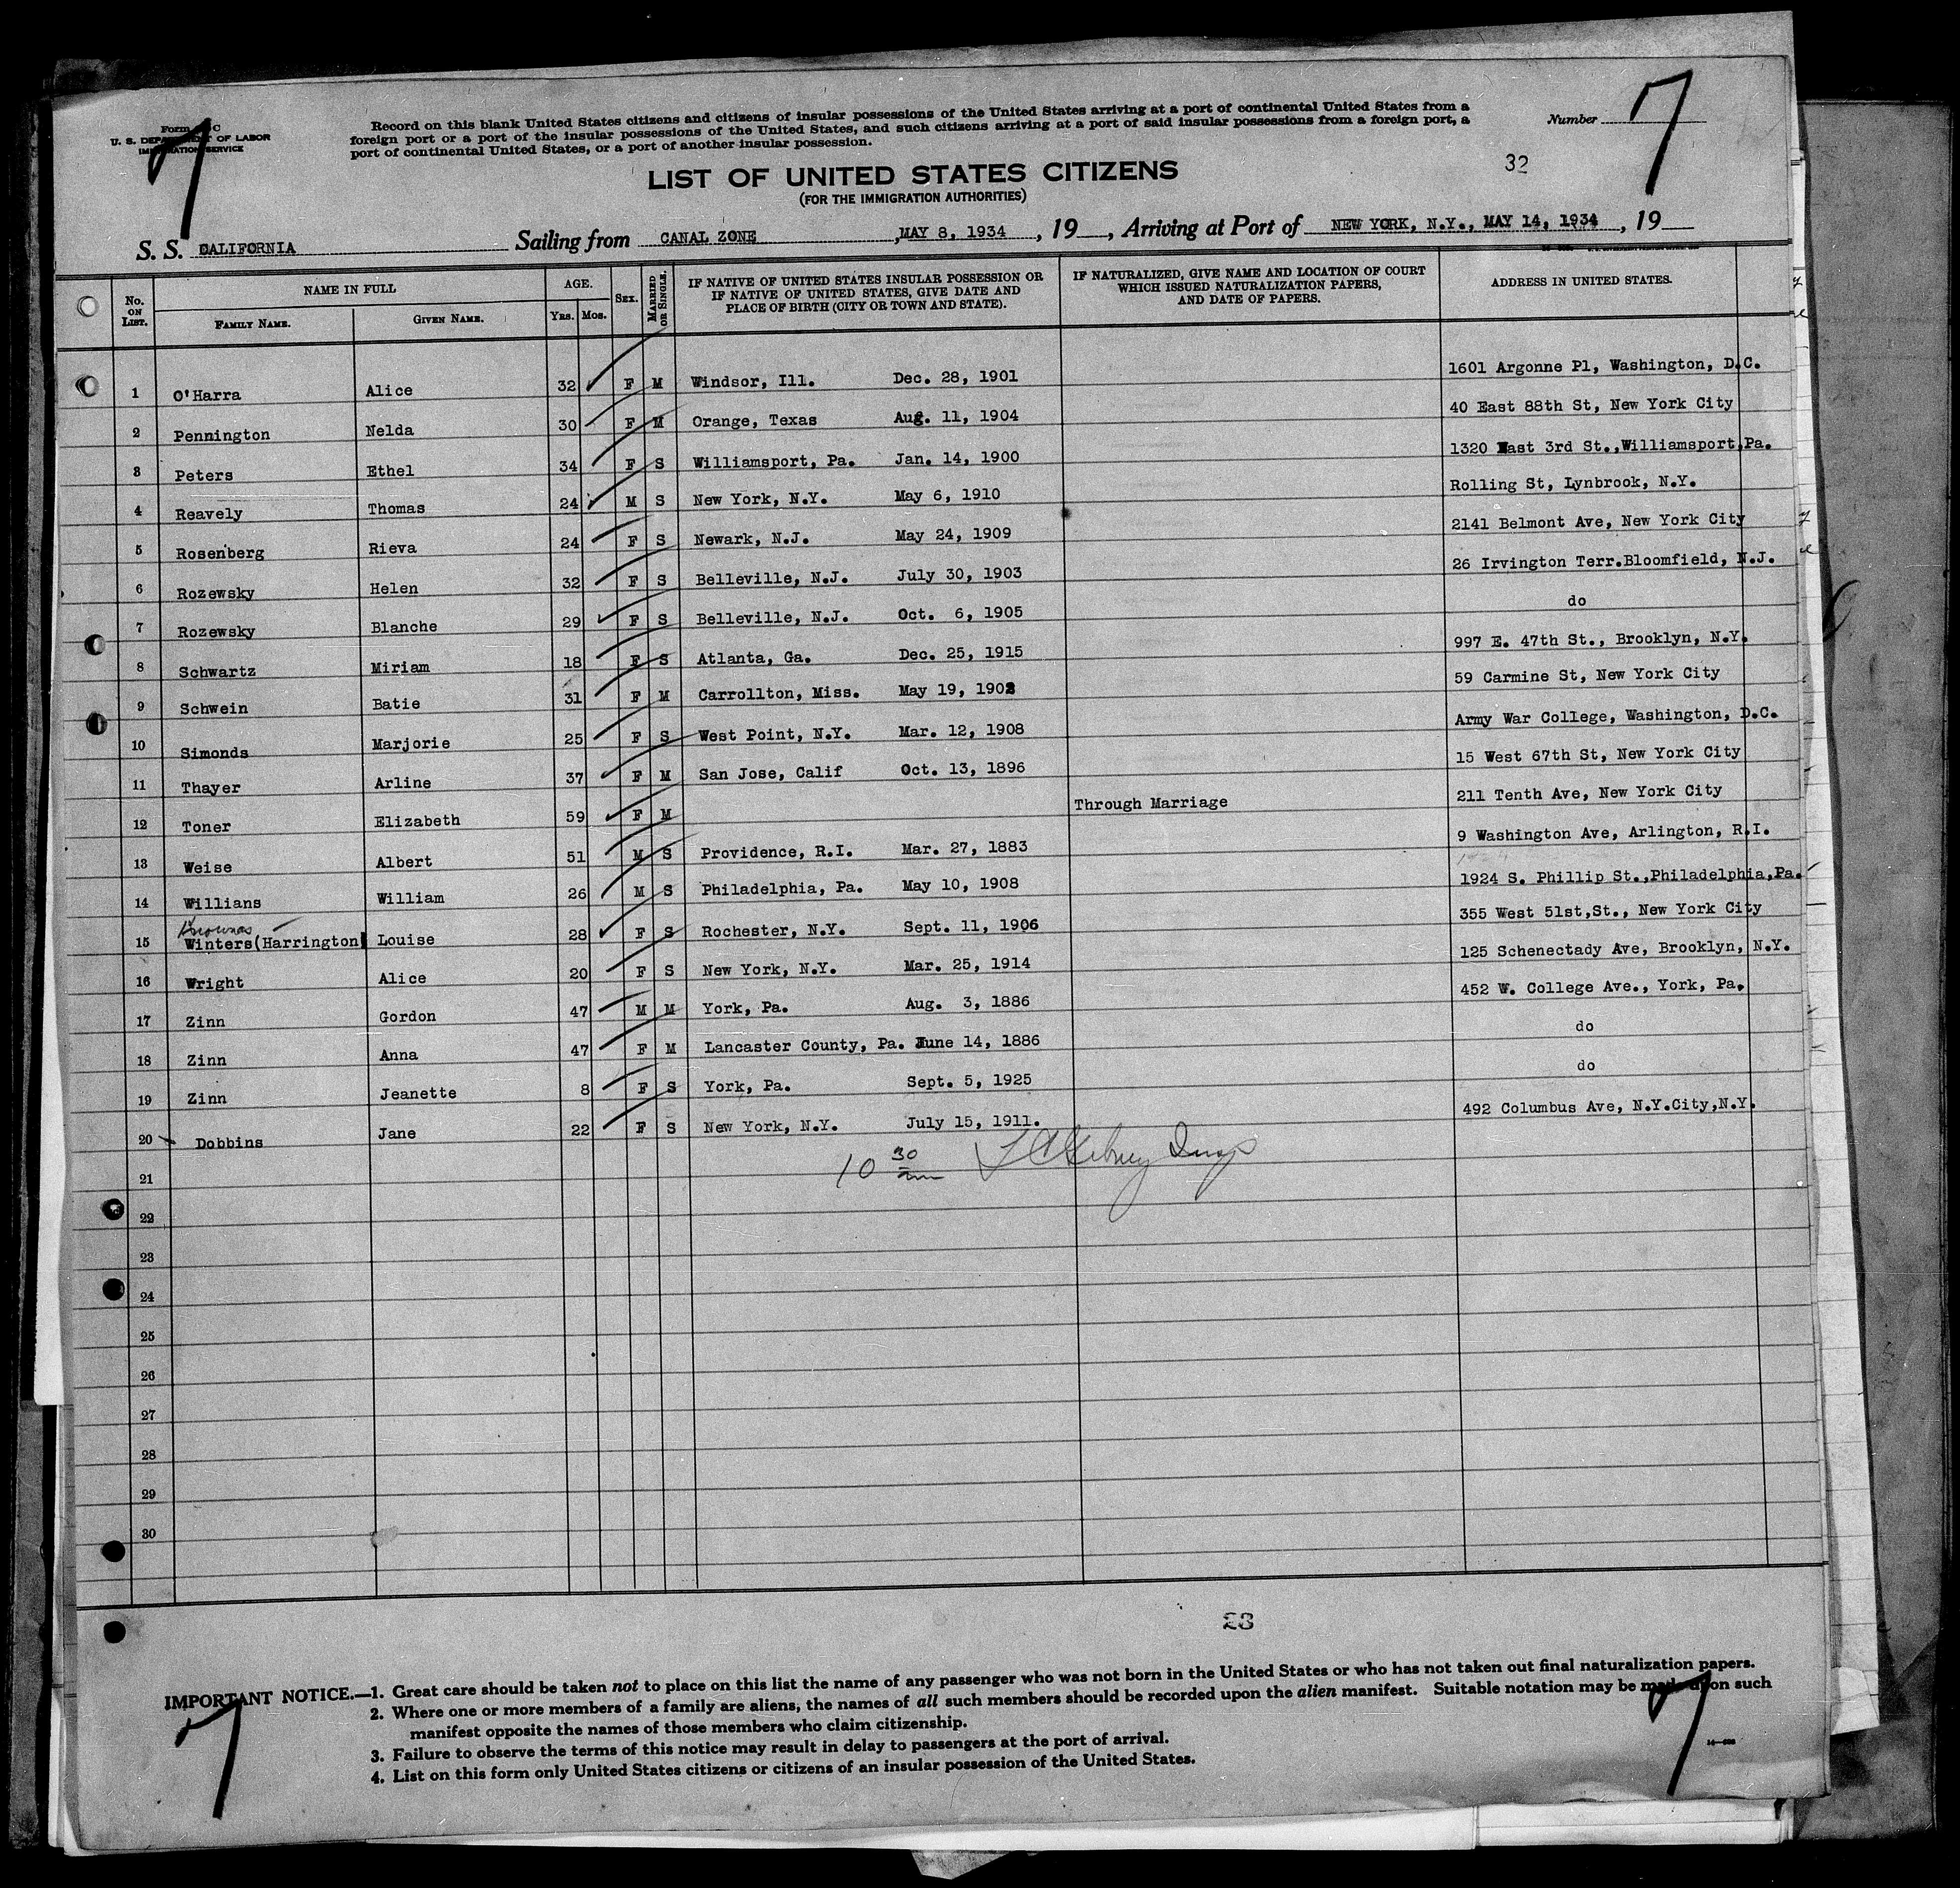 Form C
U. S. DEPARTMENT OF LABOR
IMMIGRATION SERVICE
Record on this blank United States citizens and citizens of insular possessions of the United States arriving at a port of continental United States from a
foreign port or a port of the insular possessions of the United States, and such citizens arriving at a port of said insular possessions from a foreign port, a
port of continental United States, or a port of another insular possession.
Number
7
7
32
LIST OF UNITED STATES CITIZENS
(FOR THE IMMIGRATION AUTHORITIES)
S. S. CALIFORNIA Sailing from CANAL ZONE ,MAY 8, 1934 , 19 , Arriving at Port of NEW YORK, N.Y., MAY 14, 1934 , 19
No. ON LIST. NAME IN FULL FAMILY NAME. GIVEN NAME. AGE. YRS. MOS. SEX. MARRIED OR SINGLE. IF NATIVE OF UNITED STATES INSULAR POSSESSION OR IF NATIVE OF UNITED STATES, GIVE DATE AND PLACE OF BIRTH (CITY OR TOWN AND STATE). IF NATURALIZED, GIVE NAME AND LOCATION OF COURT WHICH ISSUED NATURALIZATION PAPERS, AND DATE OF PAPERS. ADDRESS IN UNITED STATES.
1 O'Harra Alice 32 F M Windsor, Ill. Dec. 28, 1901 1601 Argonne Pl, Washington, D.C.
2 Pennington Nelda 30 F M Orange, Texas Aug. 11, 1904 40 East 88th St, New York City
3 Peters Ethel 34 F S Williamsport, Pa. Jan. 14, 1900 1320 East 3rd St.,Williamsport,Pa.
4 Reavely Thomas 24 M S New York, N.Y. May 6, 1910 Rolling St, Lynbrook, N.Y.
5 Rosenberg Rieva 24 F S Newark, N.J. May 24, 1909 2141 Belmont Ave, New York City
6 Rozewsky Helen 32 F S Belleville, N.J. July 30, 1903 26 Irvington Terr.Bloomfield, N.J.
7 Rozewsky Blanche 29 F S Belleville, N.J. Oct. 6, 1905 do
8 Schwartz Miriam 18 F S Atlanta, Ga. Dec. 25, 1915 997 E. 47th St., Brooklyn, N.Y.
9 Schwein Batie 31 F M Carrollton, Miss. May 19, 1902 59 Carmine St, New York City
10 Simonds Marjorie 25 F S West Point, N.Y. Mar. 12, 1908 Army War College, Washington, D.C.
11 Thayer Arline 37 F M San Jose, Calif Oct. 13, 1896 15 West 67th St, New York City
12 Toner Elizabeth 59 F M Through Marriage 211 Tenth Ave, New York City
13 Weise Albert 51 M S Providence, R.I. Mar. 27, 1883 9 Washington Ave, Arlington, R.I.
14 Willians William 26 M S Philadelphia, Pa. May 10, 1908 1924 S. Phillip St.,Philadelphia,Pa.
15 Winters(Harrington) Louise 28 F S Rochester, N.Y. Sept. 11, 1906 355 West 51st,St., New York City
16 Wright Alice 20 F S New York, N.Y. Mar. 25, 1914 125 Schenectady Ave, Brooklyn, N.Y.
17 Zinn Gordon 47 M M York, Pa. Aug. 3, 1886 452 W. College Ave., York, Pa.
18 Zinn Anna 47 F M Lancaster County, Pa. June 14, 1886 do
19 Zinn Jeanette 8 F S York, Pa. Sept. 5, 1925 do
20 Dobbins Jane 22 F S New York, N.Y. July 15, 1911. 492 Columbus Ave, N.Y.City,N.Y.
21 10 30 am Insp
22
23
24
25
26
27
28
29
30
23
IMPORTANT NOTICE.—1. Great care should be taken not to place on this list the name of any passenger who was not born in the United States or who has not taken out final naturalization papers.
2. Where one or more members of a family are aliens, the names of all such members should be recorded upon the alien manifest. Suitable notation may be made upon such
manifest opposite the names of those members who claim citizenship.
3. Failure to observe the terms of this notice may result in delay to passengers at the port of arrival.
4. List on this form only United States citizens or citizens of an insular possession of the United States.
7
7